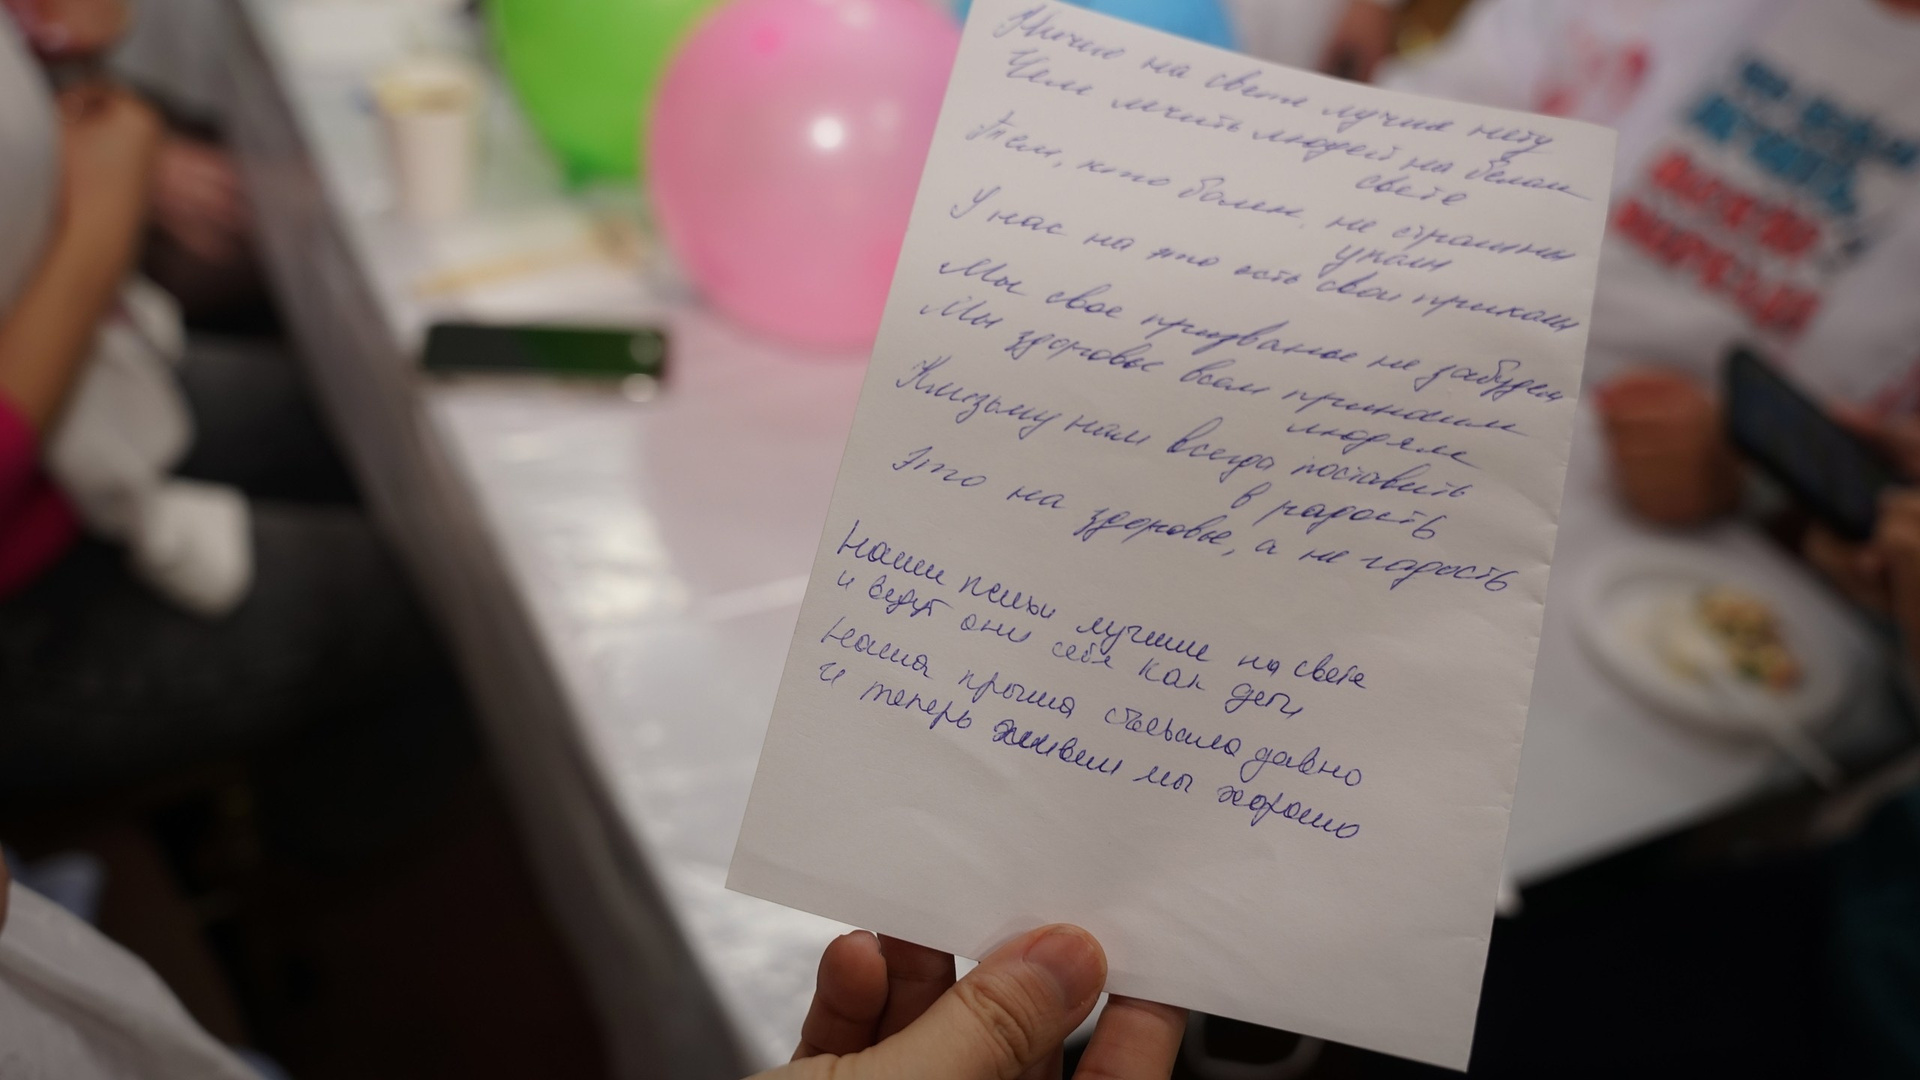 Ничего на свете лучше нету
Чем лечить людей на белом
свете
Тем, кто болен, не страшны
уколы
У нас на это есть свои приколы
Мы свое призванье не забудем
Мы здоровье всем приносим
людям
Клизьму нам всегда поставить
в радость
Это на здоровье, а не гадость
Наши психи лучшие на свете
и ведут они себя как дети
Наша крыша съехала давно
и теперь живем мы хорошо